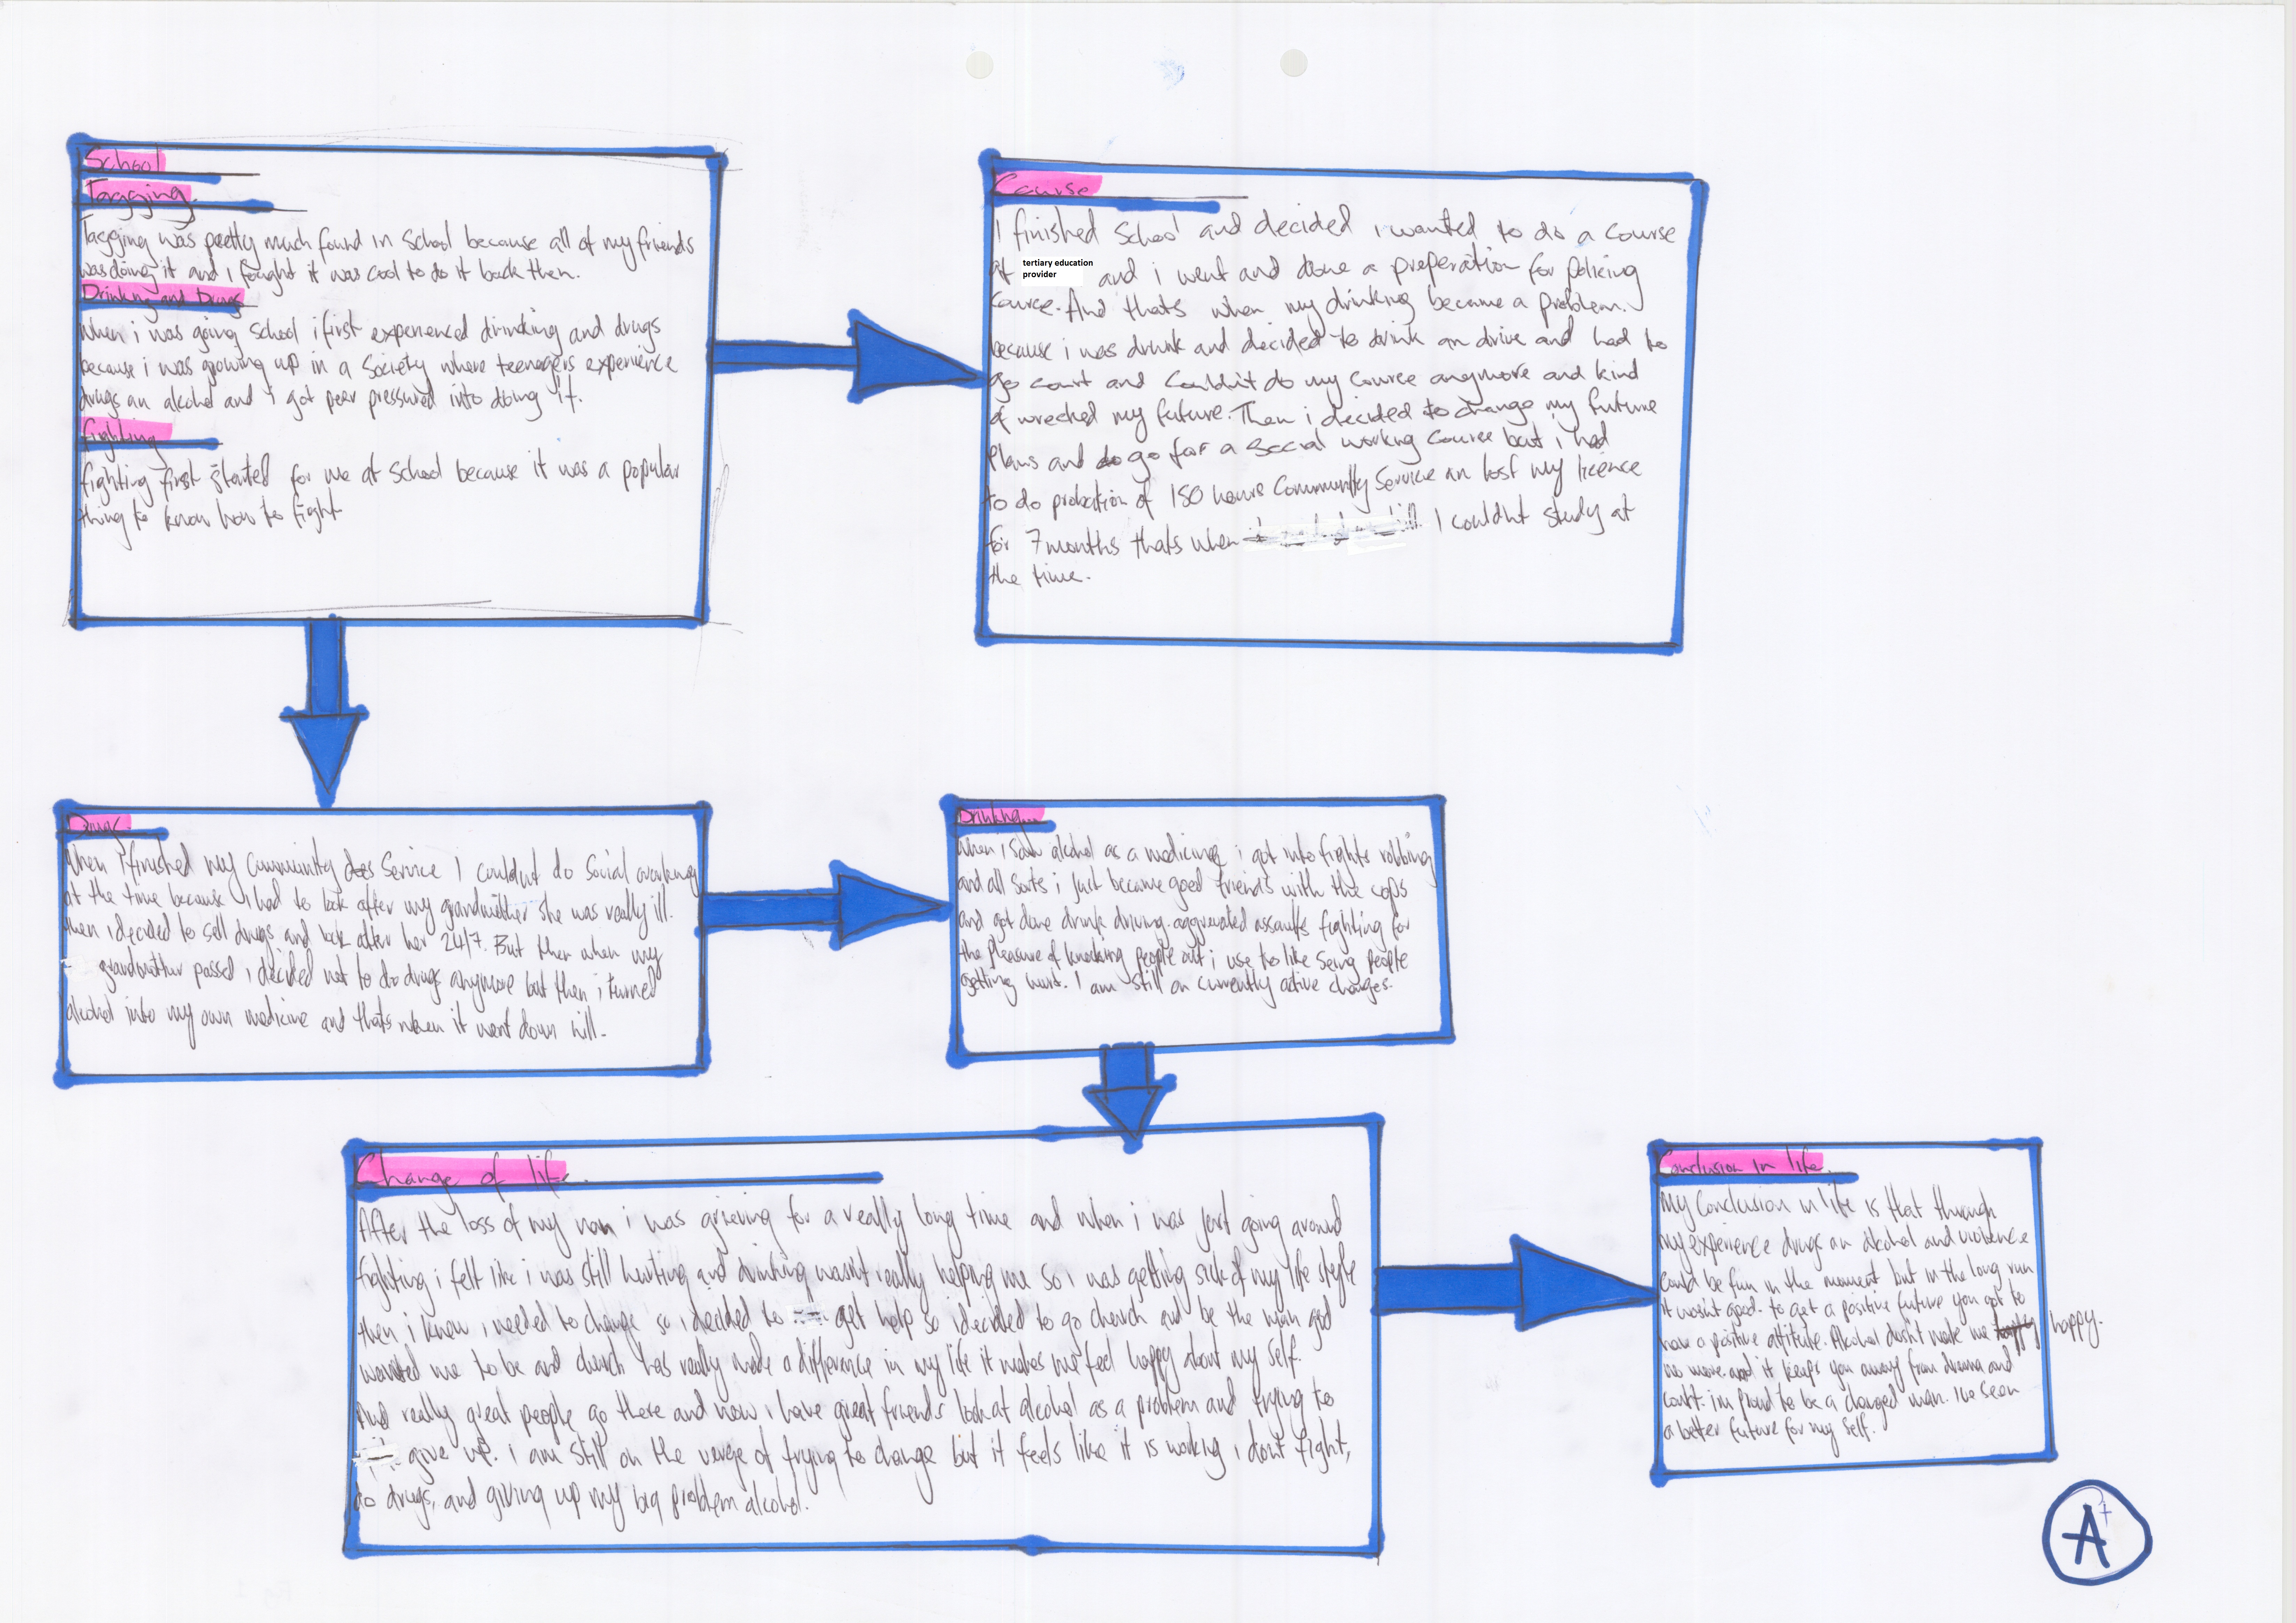 School
Tagging.
Tagging was pretty much found in School because all of my friends
was doing it and i fought it was cool to do it back then.
Drinking and Drugs
When i was going School i first experienced drinking and drugs
because i was growing up in a Society where teenagers experience
drugs an alcohol and i got peer pressured into doing it.
fighting
fighting first started for me at School because it was a popular
thing to know how to fight
Course
I finished School and decided i wanted to do a course
at tertiary education provider and i went and done a preperation for policing
course. And thats when my drinking became a problem.
because i was drunk and decided to drink an drive and had to
go court and couldn't do my course anymore and kind
of wrecked my future. Then i decided to change my future
Plans and do go for a Social working course but i had
to do probation of 150 hours Community Service an lost my licence
for 7 months thats when I couldnt study at
the time.
Drugs
When i finished my Community does Service I couldnt do Social working
at the time because i had to look after my grandmother she was really ill.
then i decided to sell drugs and look after her 24/7. But then when my
grandmother passed i decided not to do drugs anymore but then i turned
alcohol into my own medicine and thats when it went down hill.
Drinking
When i saw alcohol as a medicine i got into fights robbing
and all sorts i just became good friends with the cops
and got done drink driving aggrevated assaults fighting for
the pleasure of knocking people out i use to like seing people
getting hurt. I am still on currently active charges.
Change of life.
After the loss of my nan i was grieving for a really long time and when i was just going around
fighting i felt like i was still hurting and drinking wasnt really helping me so i was getting sick of my life style
then i knew i needed to change so i decided to get help so i decided to go church and be the man god
wanted me to be and church has really made a difference in my life it makes me feel happy about my self.
And really great people go there and now i have great friends look at alcohol as a problem and trying to
give up. i am still on the verge of trying to change but it feels like it is working i dont fight,
do drugs, and giving up my big problem alcohol.
Conclusion in life.
My Conclusion in life is that through
my experience drugs an alcohol and violence
could be fun in the moment but in the long run
it wasn't good. to get a positive future you got to
have a positive attitute. Alcohol dosn't make me happy happy.
no more and it keeps you away from drama and
court. im proud to be a changed man. Ive seen
a better future for my self.
A+